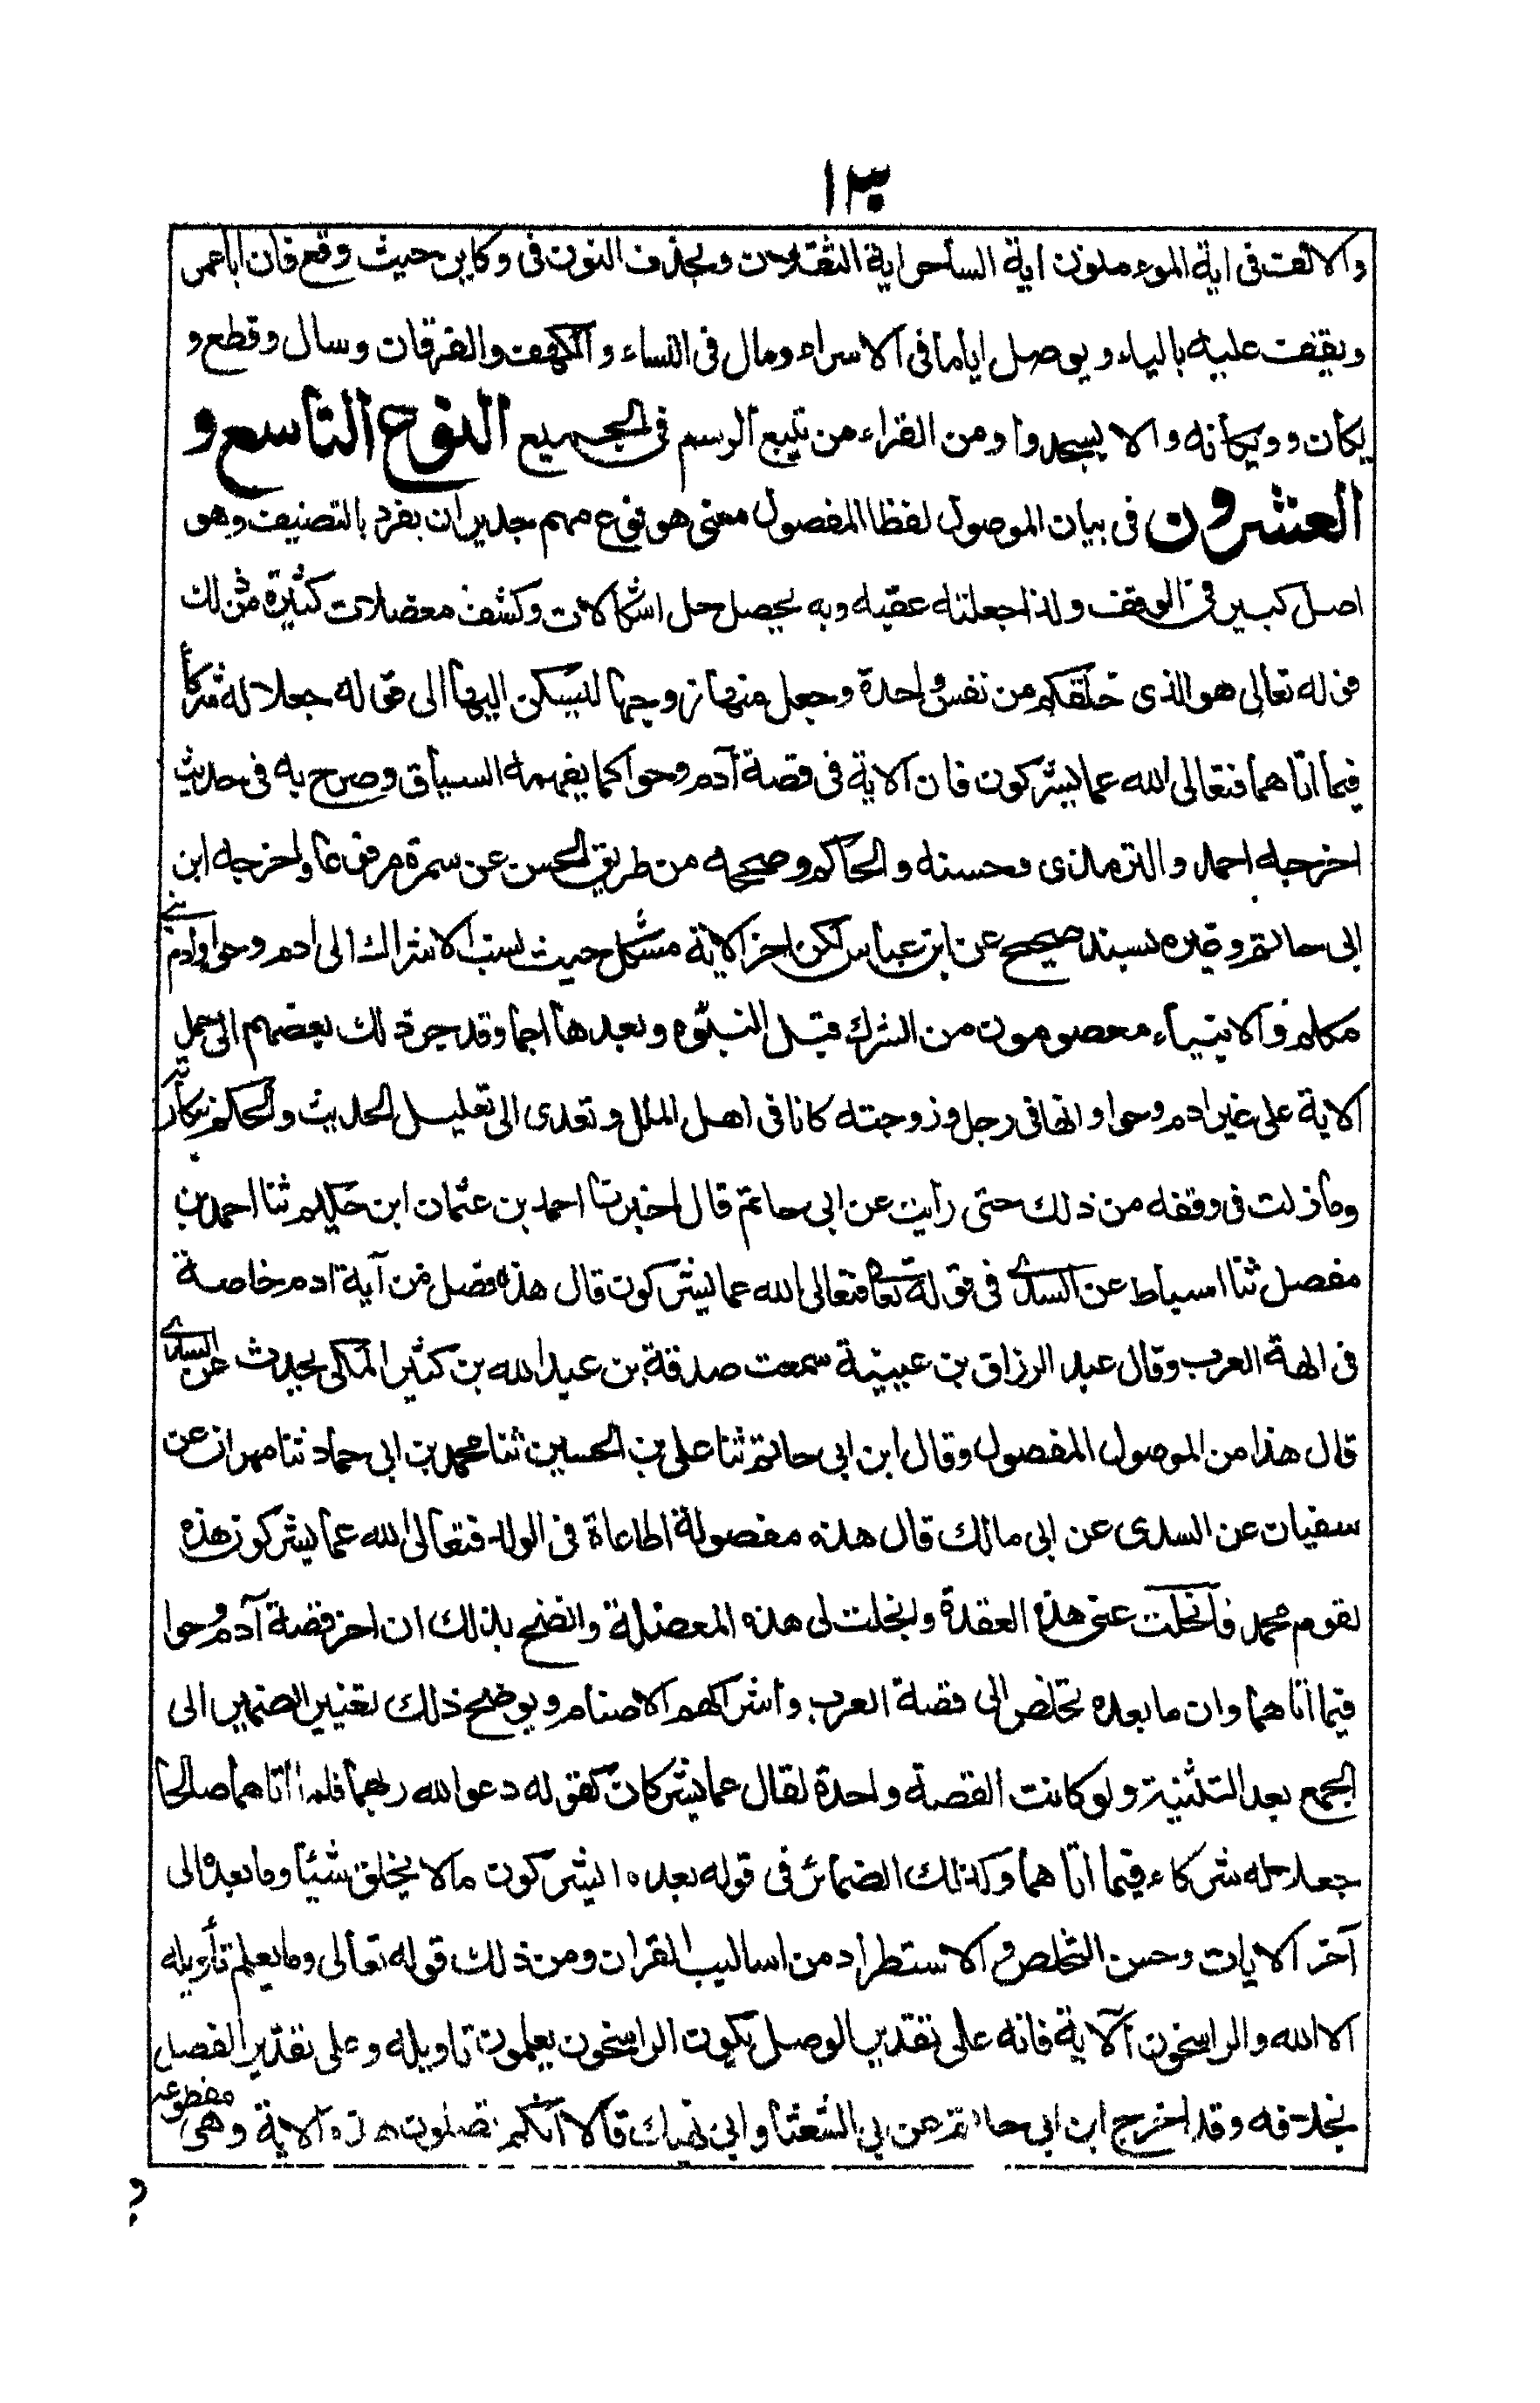 ١٣٠
والالف فى اية الموءمنون اية الساحر اية الثقلان وبحذف النون فى وكاين حيث وقع فان اباعمر
ويقف عليه بالياء ويوصل اياما فى الاسراء ومال فى النساء والكهف والفرقان وسال وقطع و
يكأن وويكأنه والا يسجدوا ومن القراء من يتبع الرسم فى الجميع النوع التاسع و
العشرون فى بيان الموصول لفظا المفصول معنى هو نوع مهم جدير ان يفرد بالتصنيف وهو
اصل كبير فى الوقف ولذا جعلته عقبه وبه يحصل حل اشكالات وكشف معضلات كثيرة من ذلك
قوله تعالى هو الذى خلقكم من نفس واحدة وجعل منها زوجها ليسكن اليها الى قوله جعلا له شركأ
فيما اتا هما فتعالى الله عما يشركون فان الاية فى قصة آدم وحوا كما يفهمه السياق وصرح به فى حديث
اخرجه احمد والترمذى وحسنه والحاكم وصححه من طريق الحسن عن سمرة مرفوعا واخرجه ابن
ابى حاتم وغيره بسند صحيح عن ابن عباس لكن اخر الاية مشكل حيث نسب الاشراك الى ادم وحوا وادم نبى
مكلم والانبياء معصومون من الشرك قبل النبوه وبعدها اجما وقد جر ذلك بعضهم الى حمل
الاية على غير ادم وحوا وانها فى رجل وزوجته كانا فى اهل الملل وتعدى الى تعليل الحديث والحكم بنكارته
وما زلت فى وقفه من ذلك حتى رأيت عن ابى حاتم قال اخبرنا احمد بن عثمان ابن حكيم ثنا احمد بن
مفصل ثنا اسباط عن السدى فى قوله تعا فتعالى الله عما يشركون قال هذه فصل من آية ادم خاصة
فى الهة العرب وقال عبد الرزاق بن عيينة سمعت صدقة بن عبد الله بن كثير المكى يحدث عن السدى
قال هذا من الموصول المفصول وقال ابن ابى حاتم ثنا على بن الحسين ثنا محمد بن ابى حماد ثنا مهران عن
سفيان عن السدى عن ابى مالك قال هذه مفصولة اطاعاة فى الولد فتعالى الله عما يشركون هذه
لقوم محمد فانحلت عنى هذه العقدة وانجلت لى هذه المعضلة واتضح بذلك ان اخر قصة آدم وحوا
فيما اتا هما وان ما بعده تخلص الى قصة العرب واشراكهم الاصنام ويوضح ذلك تغيير الضمير الى
الجمع بعد التثنية ولو كانت القصة واحدة لقال عما يشركان كقوله دعوا الله ربهما فلما اتاهما صالحا
جعلا له شركاء فيما اتا هما وكذلك الضمائر فى قوله بعده ايشركون مالا يخلق شيئا وما بعده الى
آخر الايات وحسن التخلص والاستطراد من اساليب القران ومن ذلك قوله تعالى وما يعلم تأويله
الا الله والراسخون الآية فانه على تقدير الوصل يكون الراسخون يعلمون تاويله وعلى تقدير الفصل
بخلافه وقد اخرج ابن ابى حاتم عن بى الشعثا وابى نهيك قالا انكم تصلون هذه الاية وهى مقطوعه